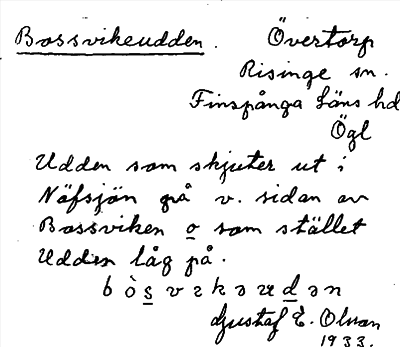 Bossvikeudden. Övertorp
Risinge sn.
Finspånga läns hd
Ögl
Udden som skjuter ut i
Näfsjön på v. sidan av
Bossviken o som stället
Udden låg på.
Gustaf E. Olsson
1933.